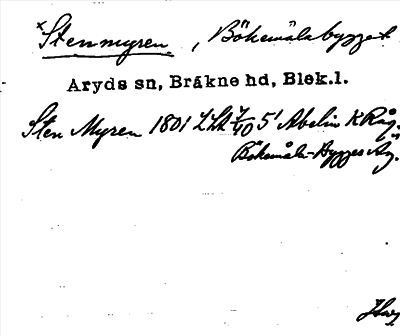 ×Stenmyren, Bökemålabygget
Aryds sn, Bräkne hd, Blek.l.
Sten Myren 1801 LSA 7/40 5' Abelin KRåg.
Bökemåla-Bygges Äg.